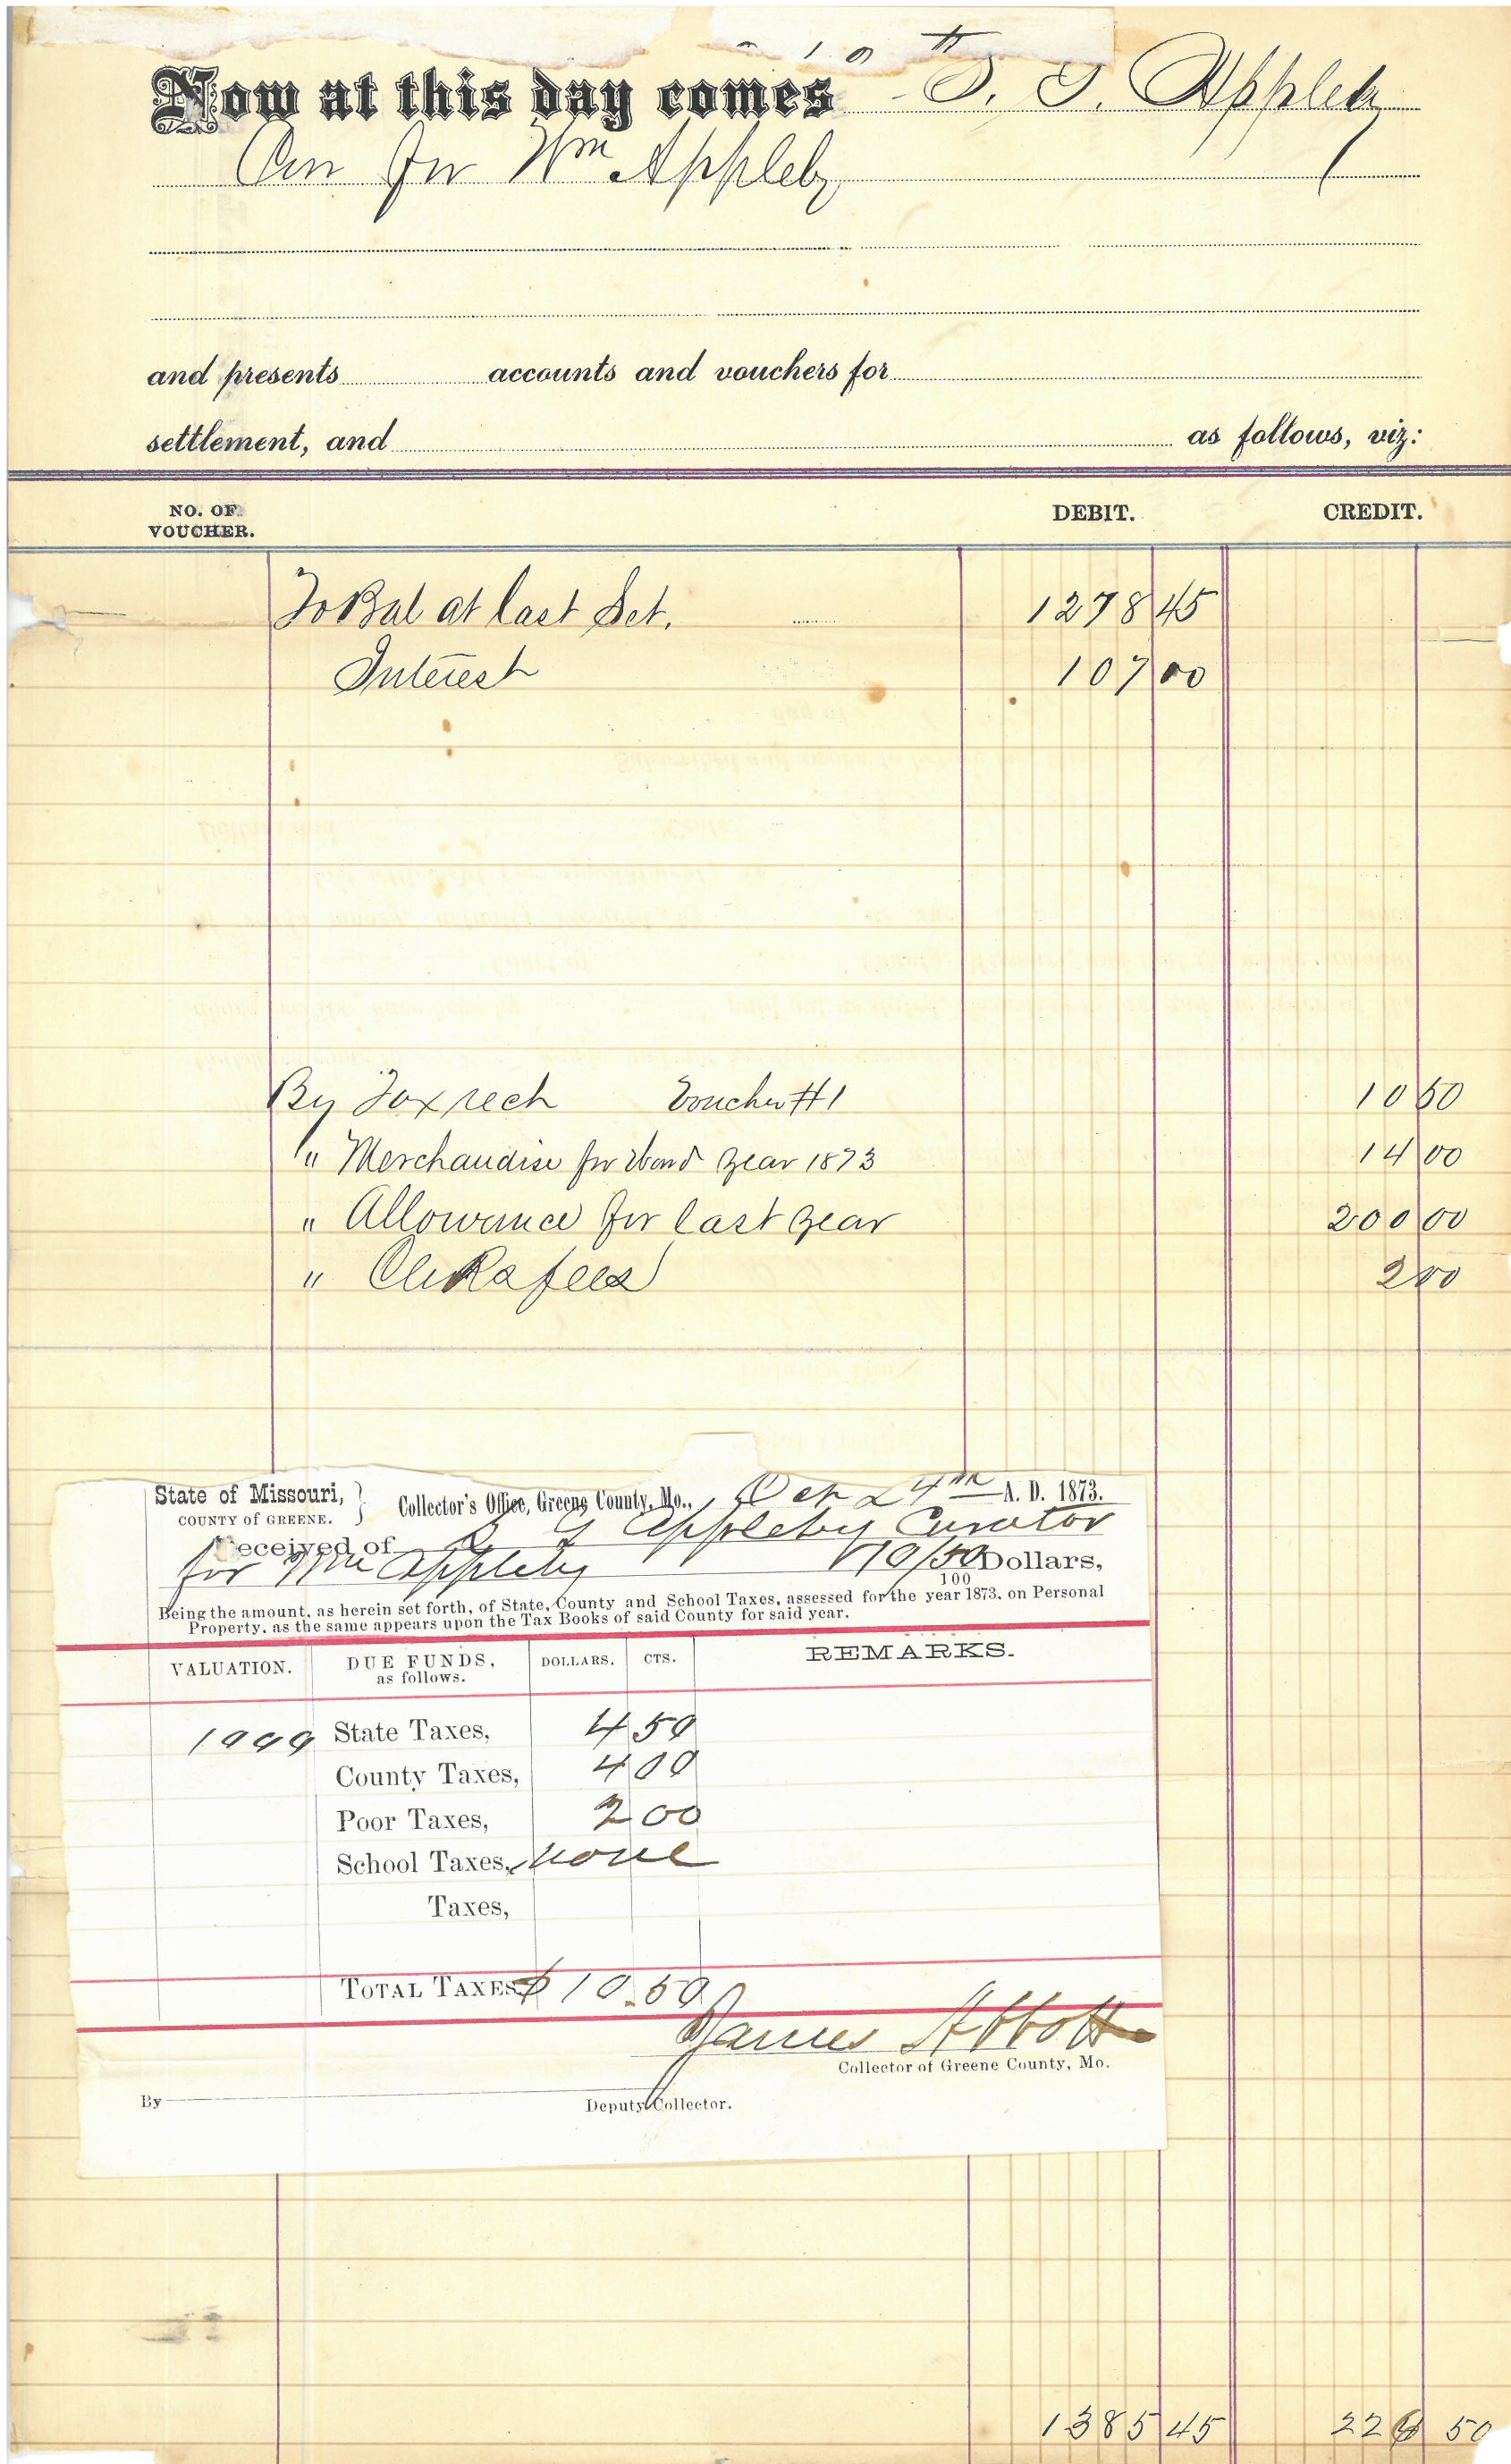 Now at this day comes S. G. Appleby
Cur for Wm Appleby
and presents accounts and vouchers for
settlement, and as follows, viz:
NO. OF VOUCHER. DEBIT. CREDIT.
To Bal at last Set. 1278 45
Interest 107 00
By Tax rect Voucher #1 10 50
" Merchandise for Ward year 1873 14 00
" Allowance for last year 200 00
" Clerks fees 2 00
State of Missouri, COUNTY OF GREENE. } Collector's Office, Greene County, Mo., Oct 24th A. D. 1873.
Received of S G Appleby Curator
for Wm Appleby $10/50 Dollars,
100
Being the amount, as herein set forth, of State, County and School Taxes, assessed for the year 1873, on Personal
Property, as the same appears upon the Tax Books of said County for said year.
VALUATION. DUE FUNDS, as follows. DOLLARS. CTS. REMARKS.
State Taxes, 4 50
County Taxes, 4 00
Poor Taxes, 2 00
School Taxes, none
Taxes,
TOTAL TAXES $10.50
James Abbott
Collector of Greene County, Mo.
By
Deputy Collector.
1385 45 226 50